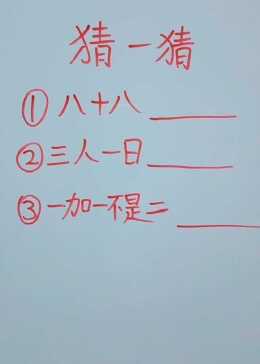 猜一猜
①八十八______
②三人一日______
③一加一不是二______